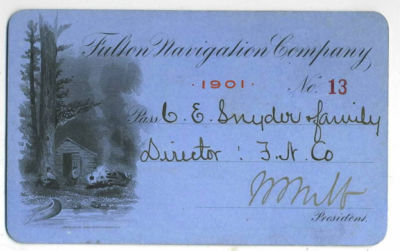 Fulton Navigation Company,
1901 No. 13
Pass C. E. Snyder & family
Director : F. N. Co
President.